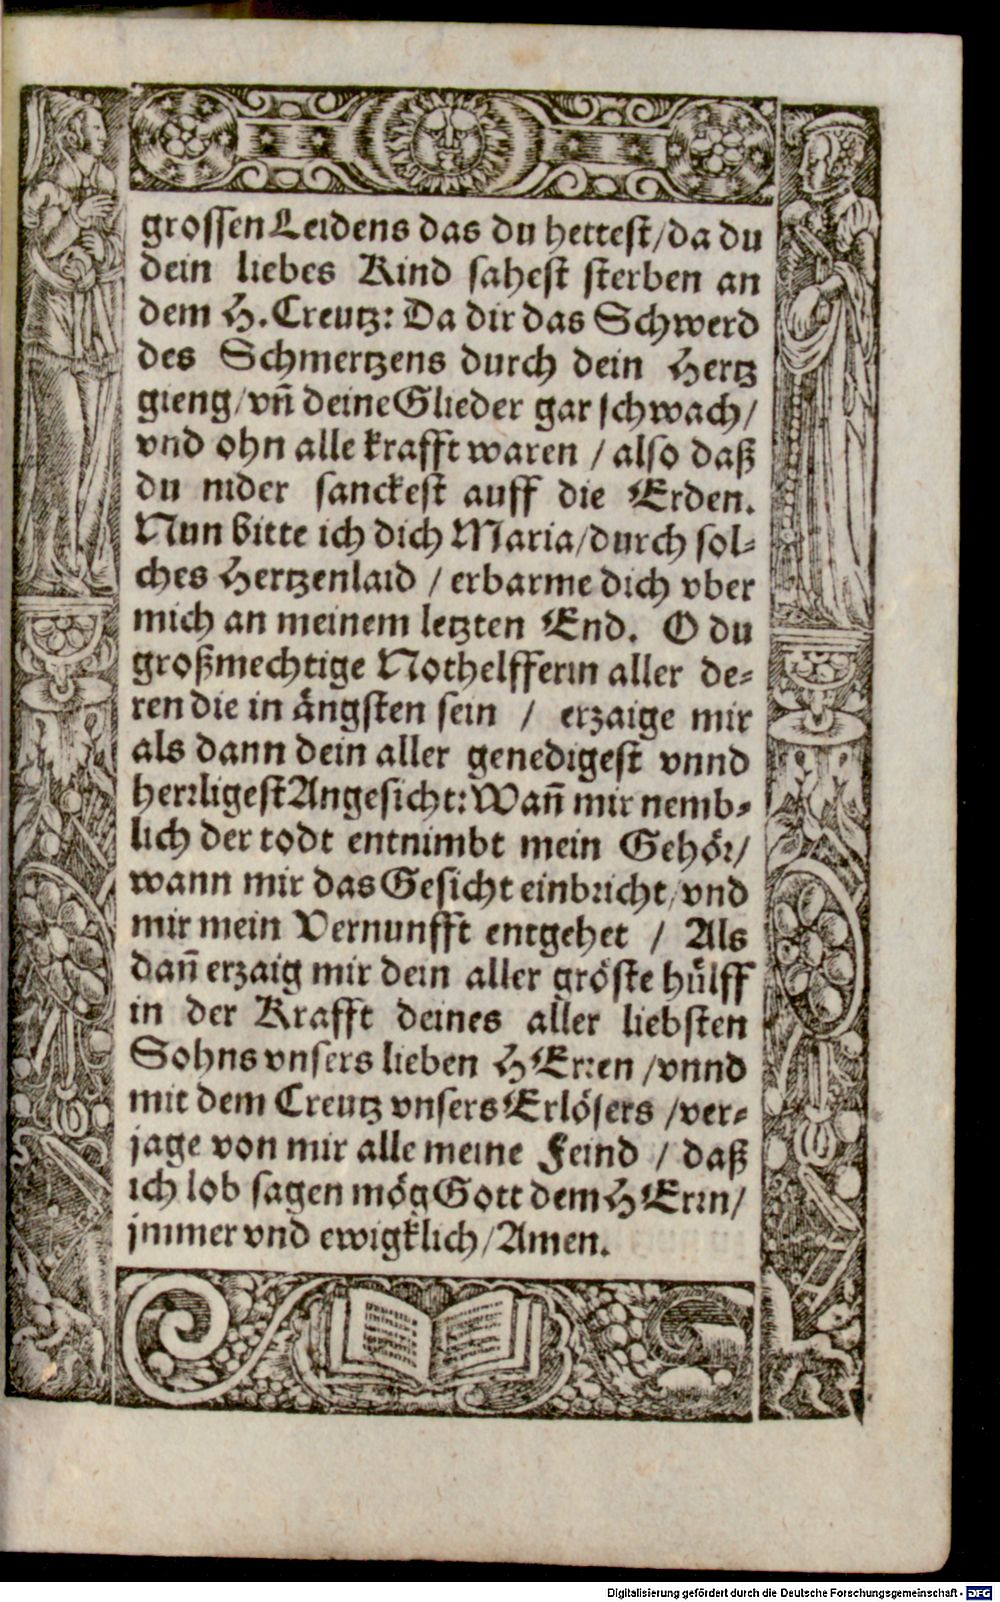 grossen Leidens das du hettest/da du
dein liebes Kind sahest sterben an
dem H. Creutz: Da dir das Schwerd
des Schmertzens durch dein Hertz
gieng/vñ deine Glieder gar schwach/
vnd ohn alle krafft waren / also daß
du nider sanckest auff die Erden.
Nun bitte ich dich Maria/durch sol-
ches Hertzenlaid / erbarme dich vber
mich an meinem letzten End. O du
großmechtige Nothelfferin aller de-
ren die in ängsten sein / erzaige mir
als dann dein aller genedigest vnnd
herrligest Angesicht: Wañ mir nemb-
lich der todt entnimbt mein Gehör/
wann mir das Gesicht einbricht/vnd
mir mein Vernunfft entgehet / Als
dañ erzaig mir dein aller gröste hülff
in der Krafft deines aller liebsten
Sohns vnsers lieben HErren /vnnd
mit dem Creutz vnsers Erlösers /ver-
jage von mir alle meine Feind / daß
ich lob sagen mög Gott dem HErrn/
jmmer vnd ewigklich/Amen.
Digitalisierung gefördert durch die Deutsche Forschungsgemeinschaft - DFG